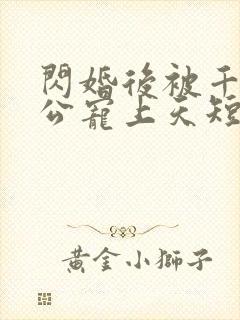 閃婚後被千
公寵上天短
黃金小獅子